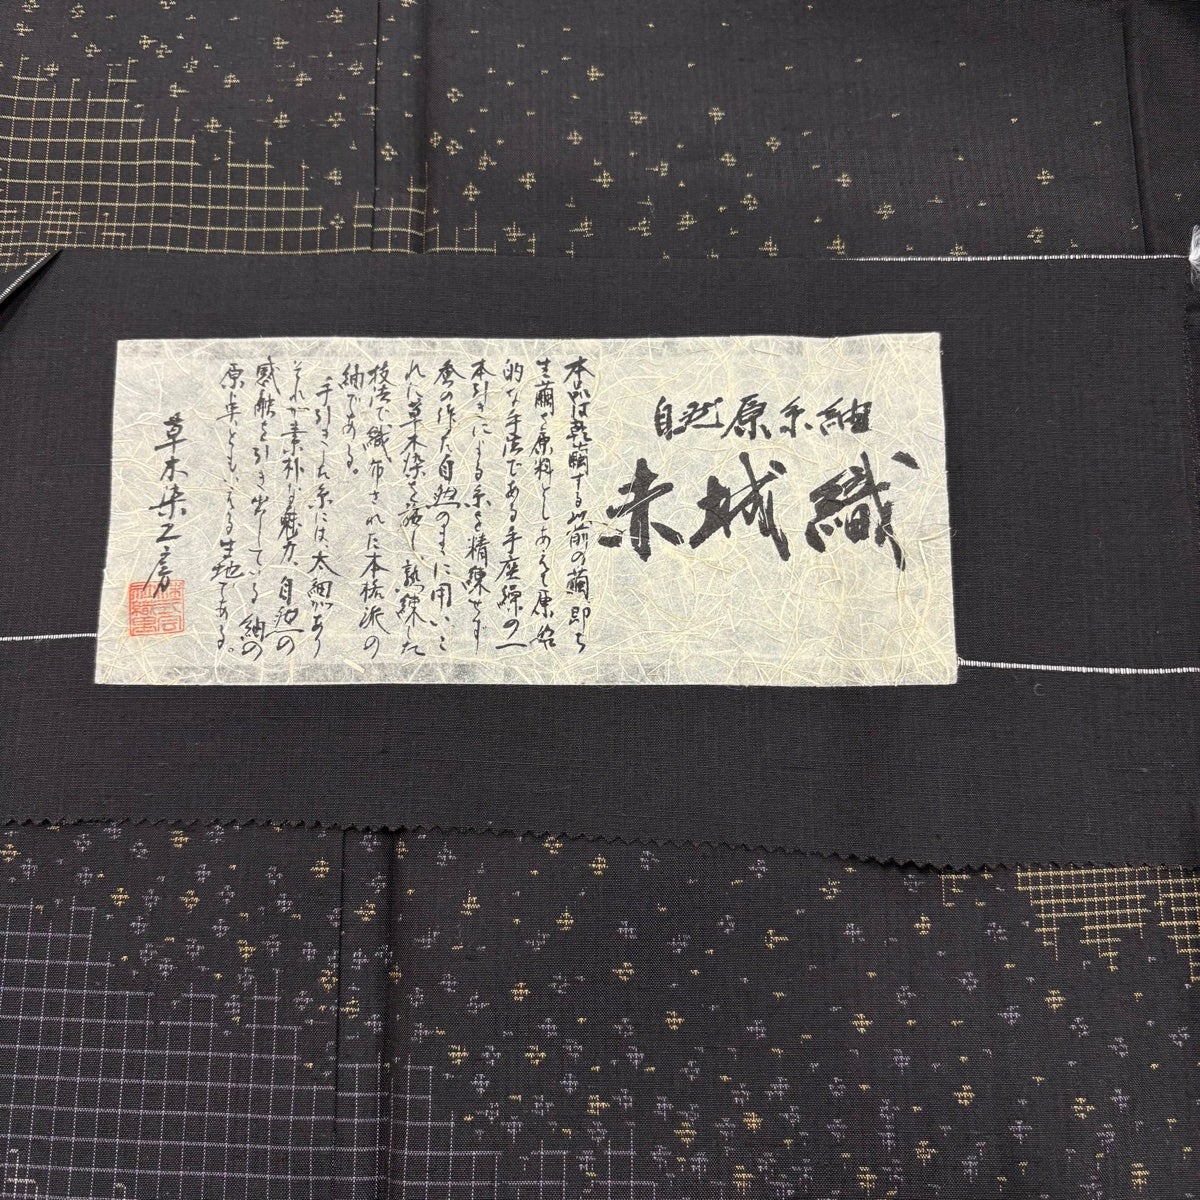 自然原糸紬
赤城織
本品は乾繭する以前の繭即ち
生繭を原料としあえて原始
的な手法である手座繰の一
本引きによる糸を精練せず
蚕の作た自然のまに用いこ
れに草木染を施し、熟練した
技法で織布された本格派の
紬である。
手引きした糸には、太細があり
それが素朴な魅力、自然の
感触を引き出している紬の
原点ともいえる生地である。
草木染工房